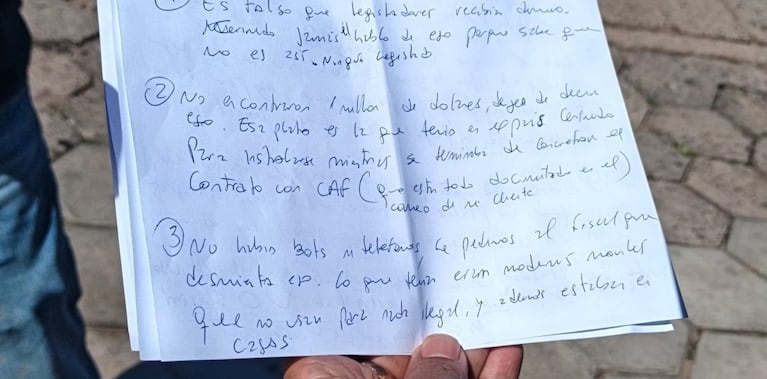 ① Es falso que legisladores reciban dinero.
jamás habló de eso porque sabe que
no es así. Ningún legislad
② No encontraron 1 millon de dolares, dejen de decir
eso. Esa plata es la que tenia en el pais
Para instalarse mientras se terminaba de concretar el
Contrato con CAF (que esta todo documentado en el)
correo de mi cliente
③ No habia bots ni telefonos, le pedimos al fiscal que
desmienta eso. Lo que tenia eran modems moviles
que no usan para nada ilegal, y ademas estaban en
cajas.